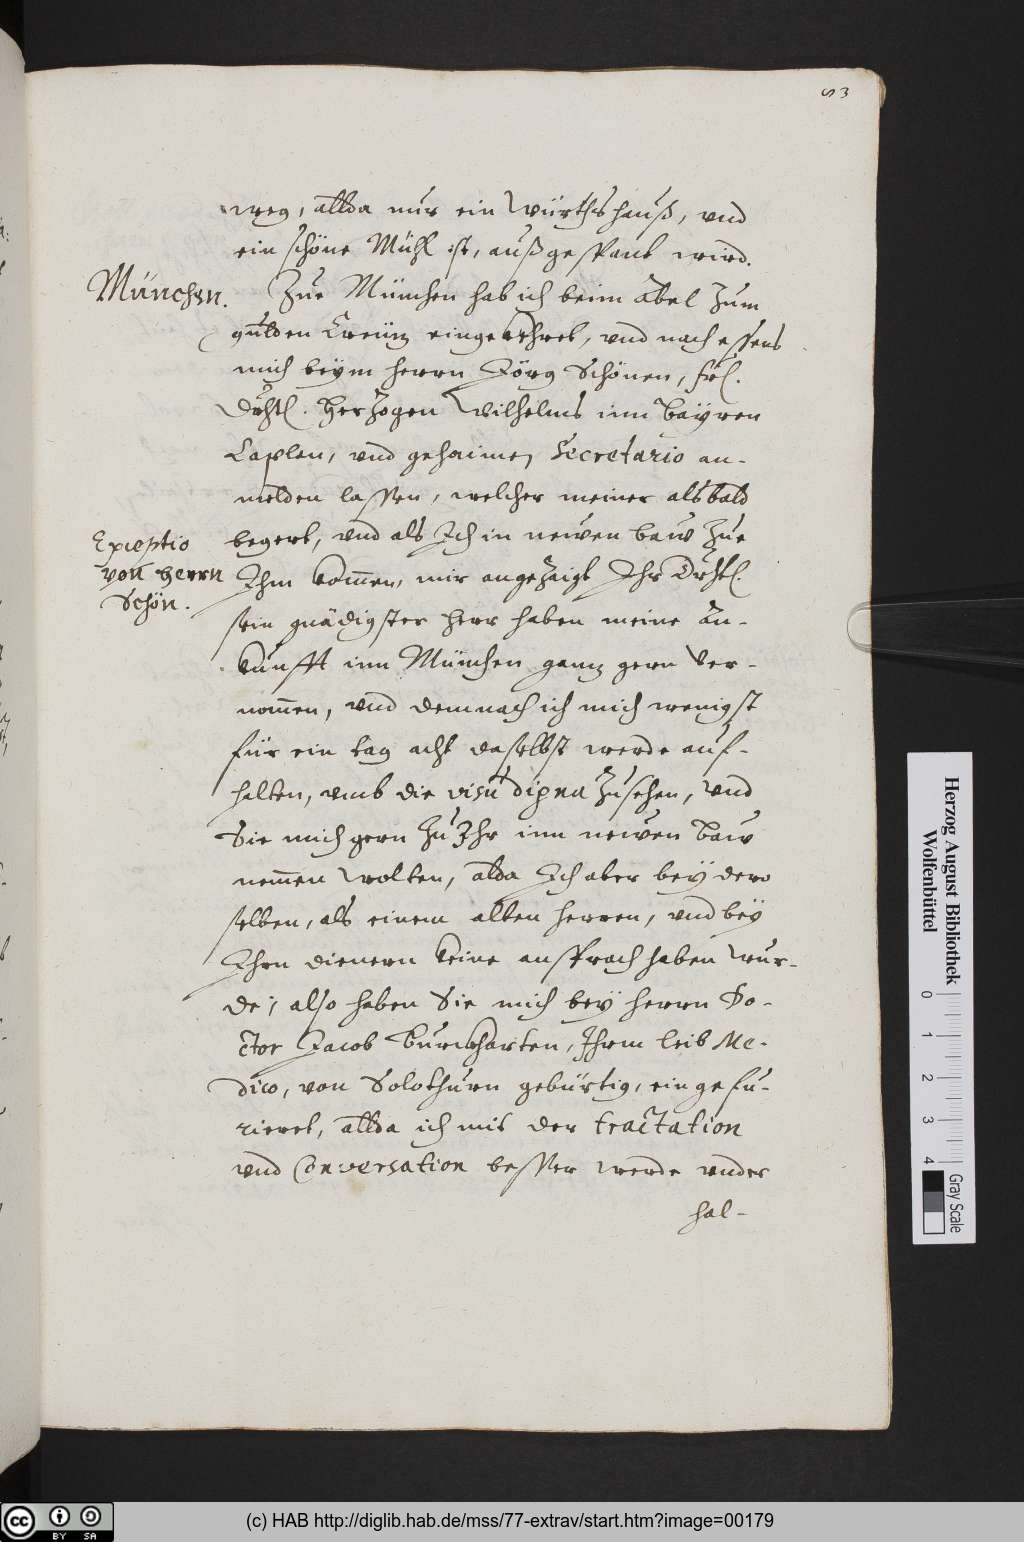 53
weg, allda nur ein Würthshauß, vnd
ein schöne Mühl ist, außgespant wird.
München.
Zue München hab ich beim Abel zum
gulden Creütz eingekehret, vnd nach essens
mich beÿm herrn Jörg Schönen, frl.
Drhtl. Herzogen Wilhelms inn Baÿren
Caplan, vnd gehaimen Secretario an-
melden lassen, welcher meiner alsbald
Exceptio
von herrn
Schön.
begert, vnd als Ich in newen baw zue
Ihm kom̄en, mir angezaigt Ihr Drhtl.
sein gnädigster herr haben meine An-
kunfft inn München gantz gern ver-
nom̄en, vnd demnach ich mich wenigst
für ein tag acht daselbst werde auf-
halten, vmb die visu digna zusehen, vnd
Sie mich gern zu Ihr inn newen Baw
nem̄en wolten, alda Ich aber beÿ dero
selben, als einem alten herren, vnd beÿ
Ihrn dienern keine ansprach haben wur-
de; also haben Sie mich beÿ herrn Do-
ctor Jacob Burckharten, Ihrm leib Me-
dico, von Solothurn gebürtig, eingefu-
rieret, allda ich mit der tractation
vnd Conversation besser werde vnder
hal-
Herzog August Bibliothek
Wolfenbüttel
0 1 2 3 4
Gray Scale
cc BY SA
(c) HAB http://diglib.hab.de/mss/77-extrav/start.htm?image=00179